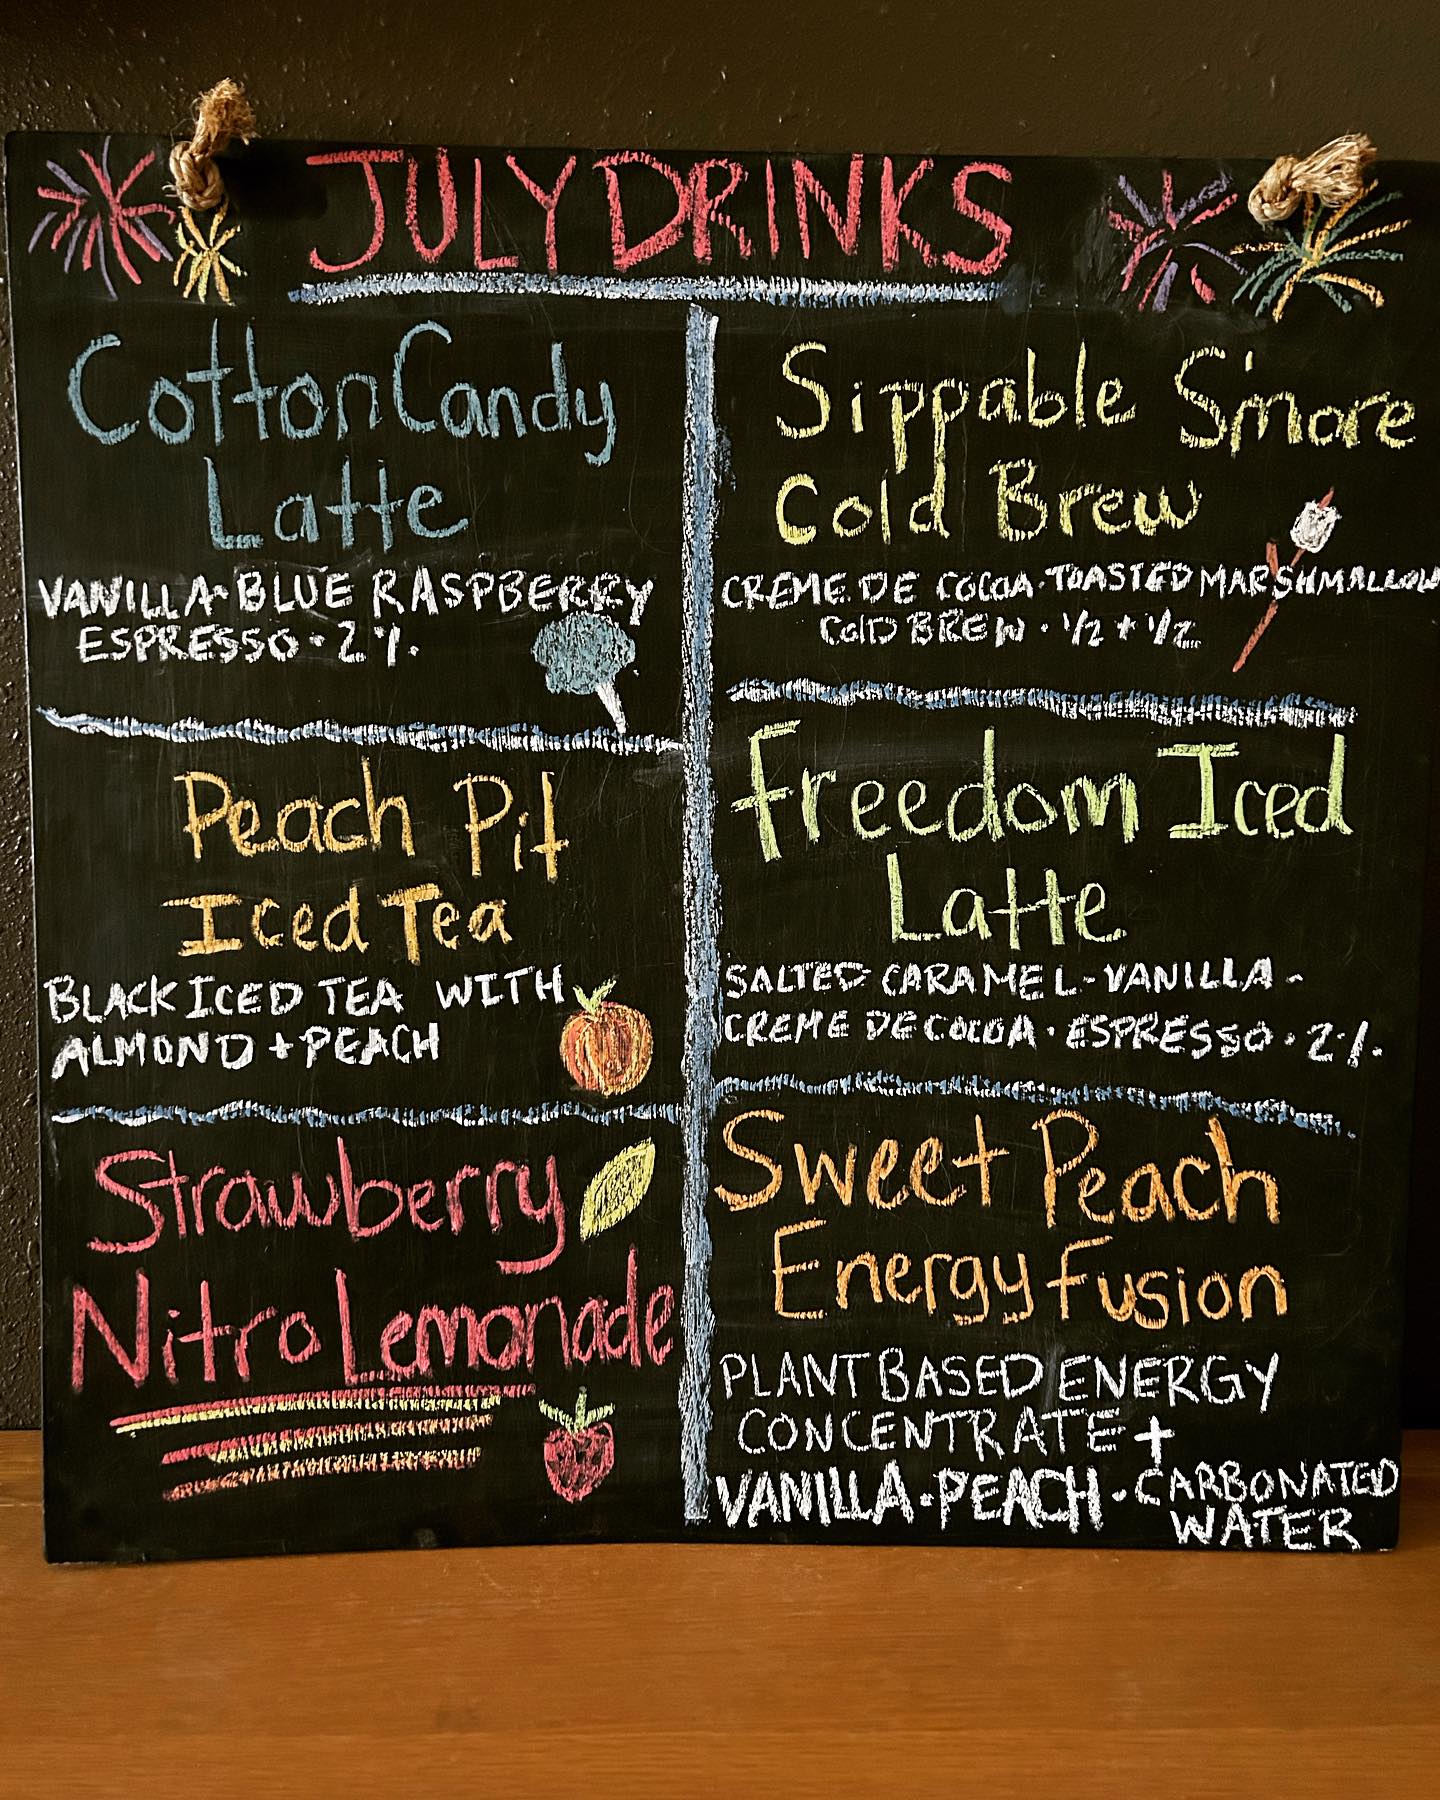 JULY DRINKS
Cotton Candy
Latte
VANILLA-BLUE RASPBERRY
ESPRESSO · 2%
Peach Pit
Iced Tea
BLACK ICED TEA WITH
ALMOND + PEACH
Strawberry
Nitro Lemonade
Sippable S'more
Cold Brew
CREME DE COCOA · TOASTED MARSHMALLOW
COLD BREW · 1/2 + 1/2
Freedom Iced
Latte
SALTED CARAMEL - VANILLA -
CREME DE COCOA · ESPRESSO · 2%
Sweet Peach
Energy Fusion
PLANT BASED ENERGY
CONCENTRATE +
VANILLA · PEACH · CARBONATED
WATER